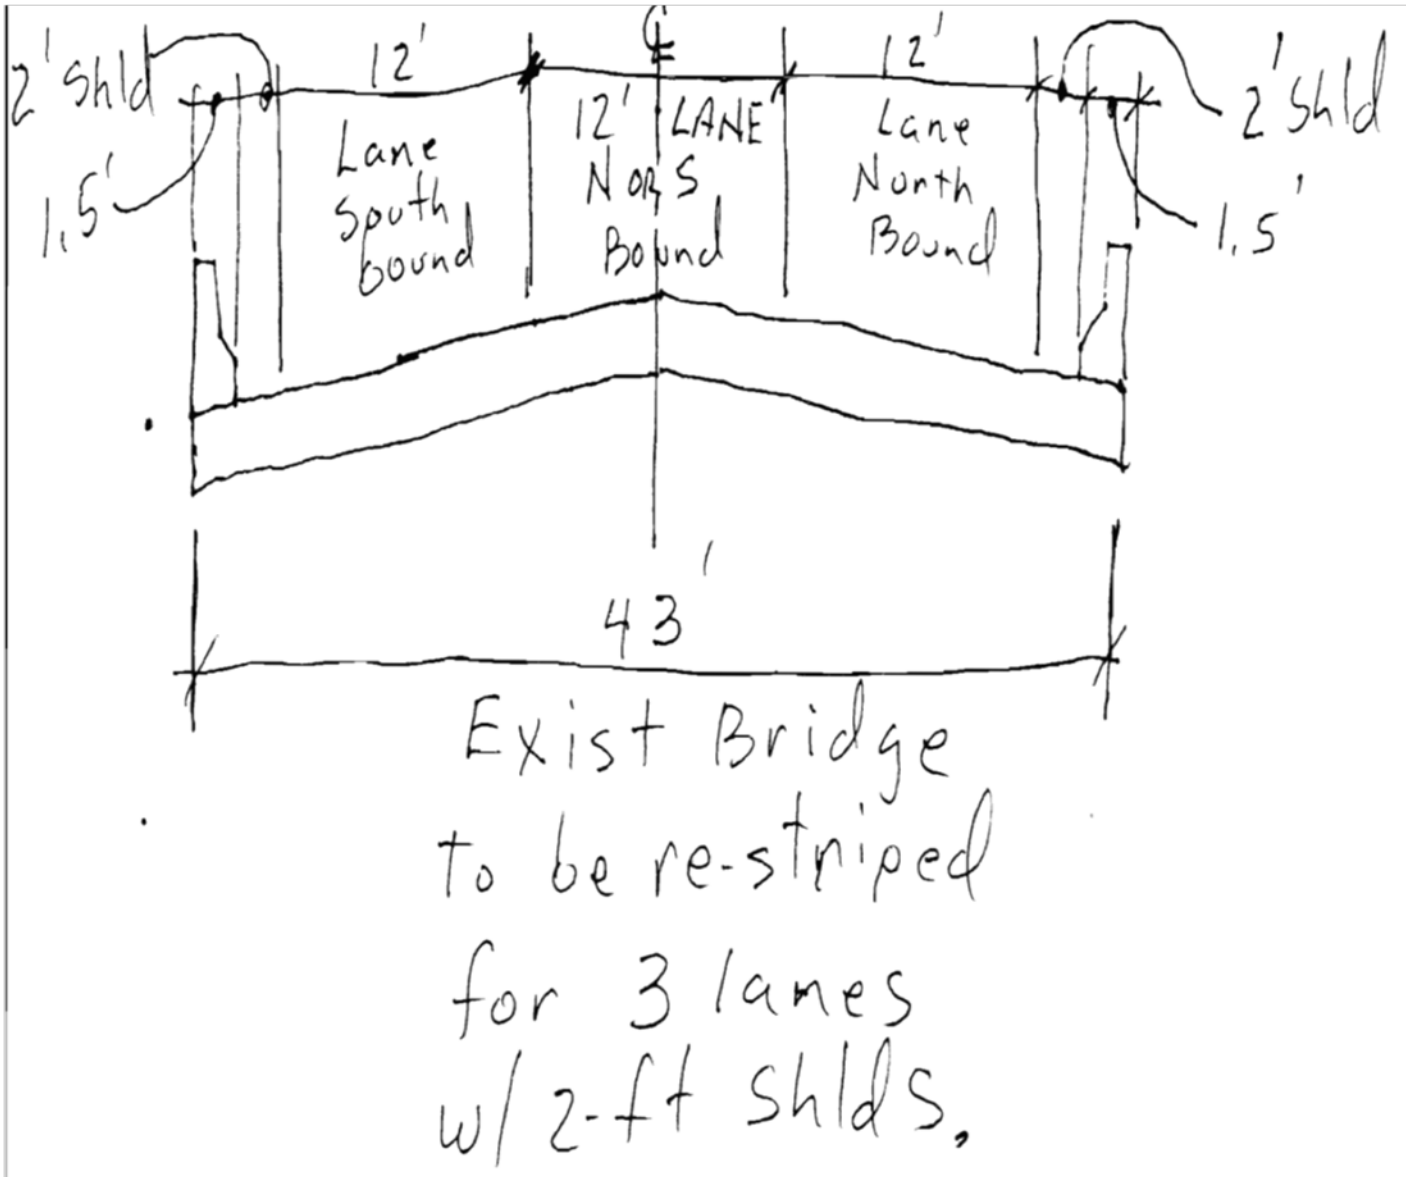 ℄
2' Shld
12'
12'
2' Shld
1.5'
Lane
South
bound
12' LANE
N or S
Bound
Lane
North
Bound
1.5'
43'
Exist Bridge
to be re-striped
for 3 lanes
w/ 2-ft shlds.